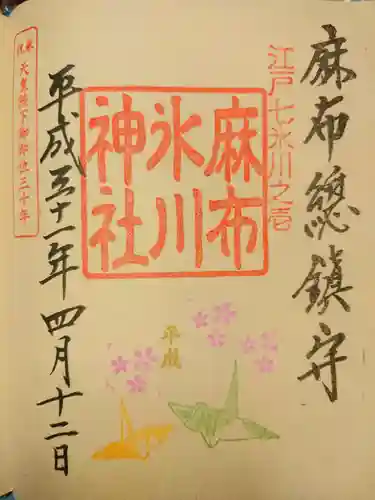 麻布總鎮守
江戸七氷川之壱
麻布
氷川
神社
平成
平成三十一年四月十二日
奉祝 天皇陛下御即位三十年